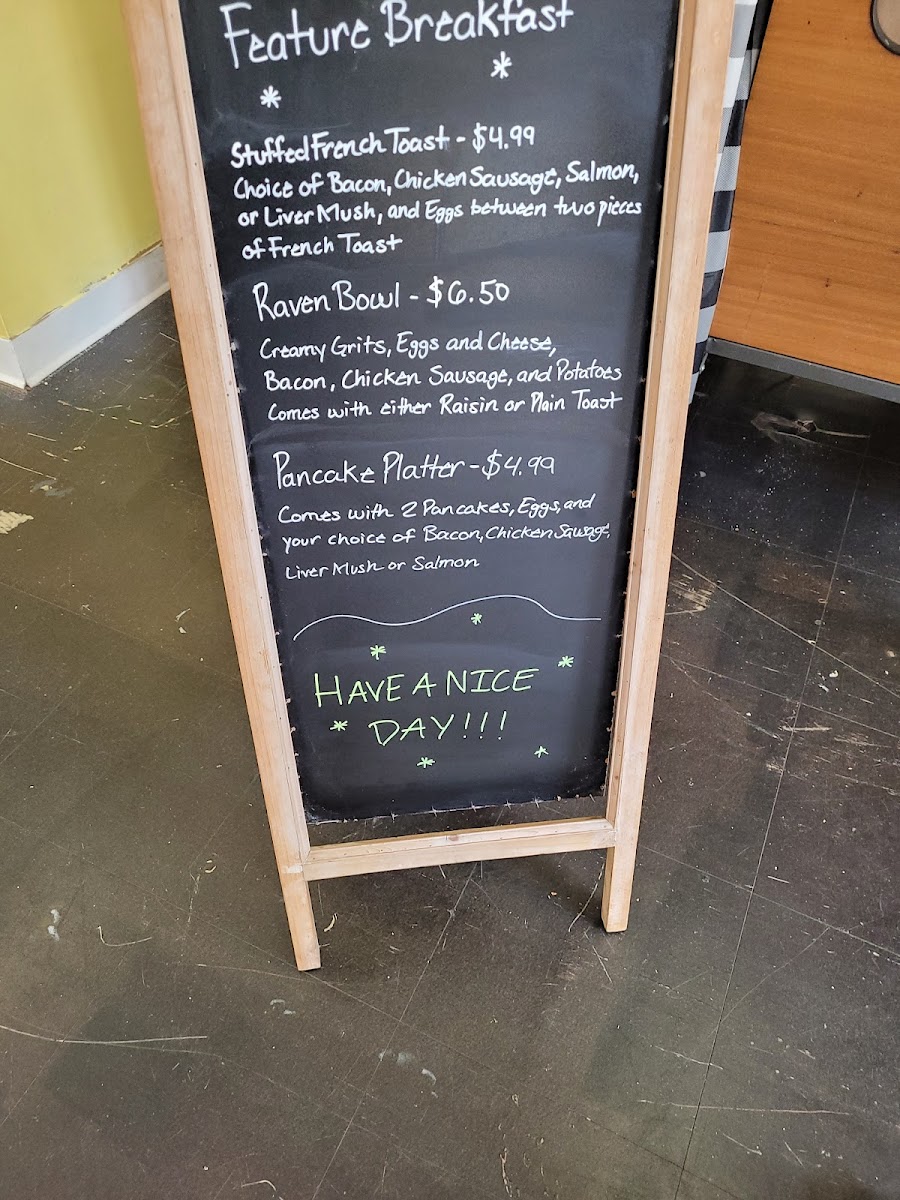 Feature Breakfast
Stuffed French Toast - $4.99
Choice of Bacon, Chicken Sausage, Salmon,
or Liver Mush, and Eggs between two pieces
of French Toast
Raven Bowl - $6.50
Creamy Grits, Eggs and Cheese,
Bacon, Chicken Sausage, and Potatoes
Comes with either Raisin or Plain Toast
Pancake Platter - $4.99
Comes with 2 Pancakes, Eggs, and
your choice of Bacon, Chicken Sausage,
Liver Mush or Salmon
HAVE A NICE
DAY!!!